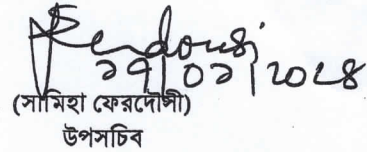 Ferdousi
২৭|০১|2024
(সামিহা ফেরদৌসী)
উপসচিব